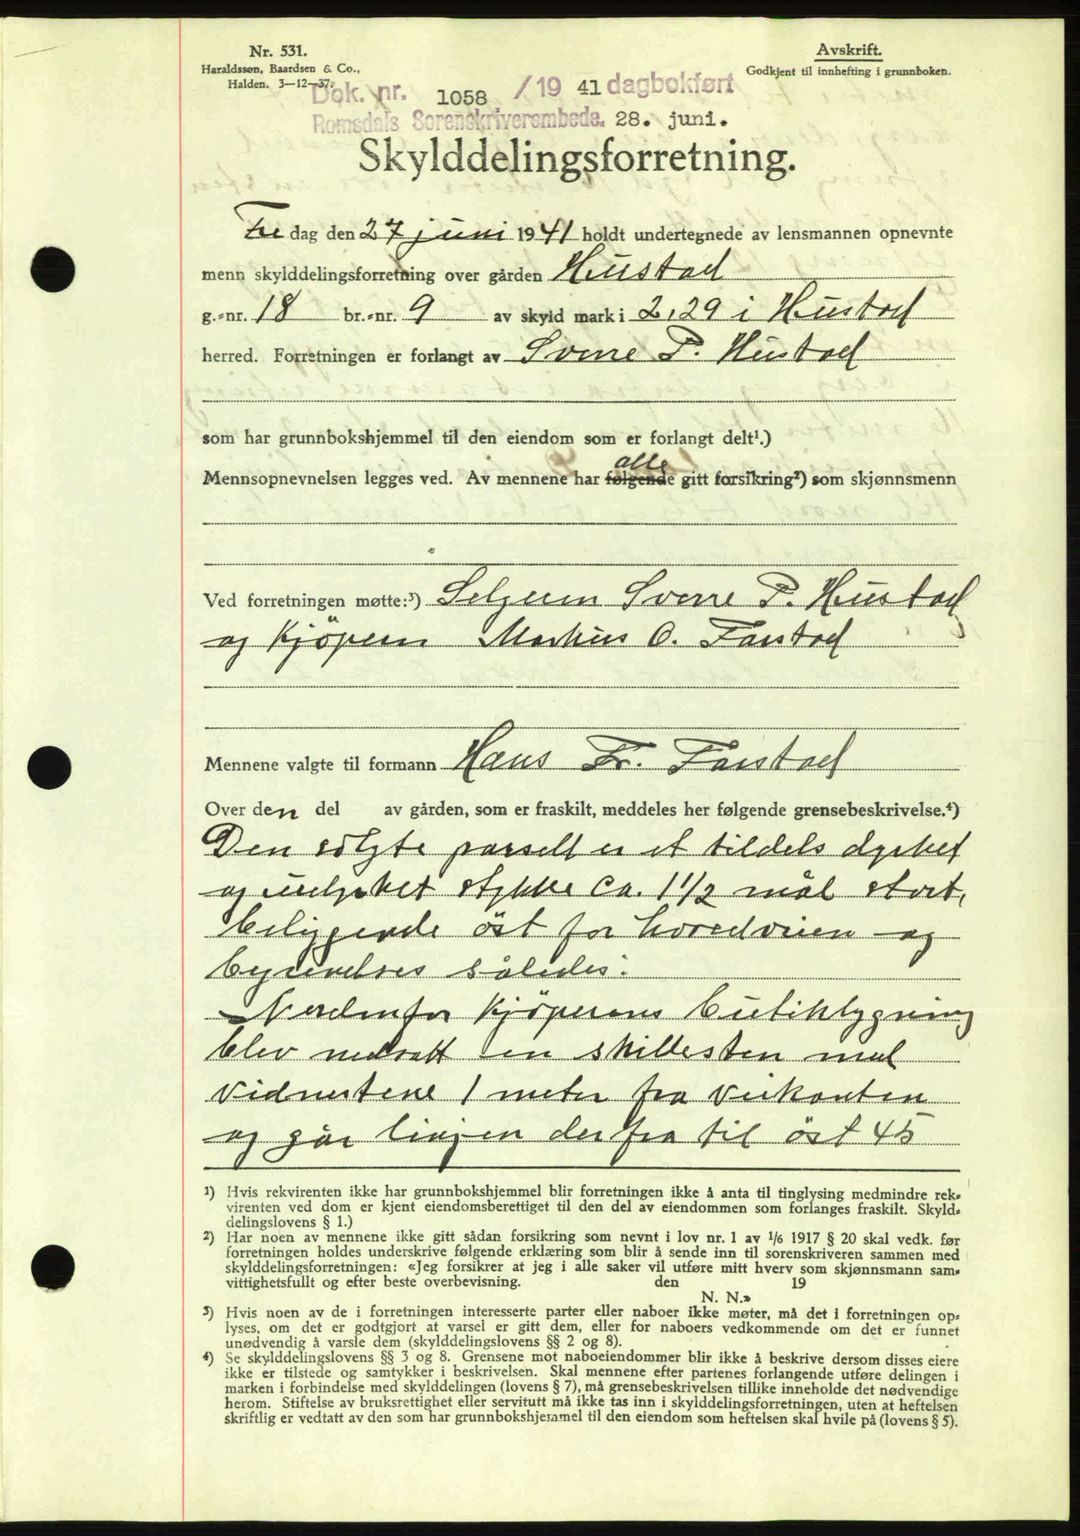 Nr. 531.
Haraldssøn, Baardsen & Co.,
Halden. 3—12—37.
Avskrift.
Godkjent til innhefting i grunnboken.
Dok. nr. 1058 /19 41 dagbokført
Romsdals Sorenskriverembede. 28. juni.
Skylddelingsforretning.
Fre dag den 27 juni 1941 holdt undertegnede av lensmannen opnevnte
menn skylddelingsforretning over gården Hustad
g.-nr. 18 br.-nr. 9 av skyld mark i 2,29 i Hustad
herred. Forretningen er forlangt av Sverre P. Hustad
som har grunnbokshjemmel til den eiendom som er forlangt delt¹.)
alle
Mennsopnevnelsen legges ved. Av mennene har følgende gitt forsikring²) som skjønnsmenn
Ved forretningen møtte:³) Selgeren Sverre P. Hustad
og Kjöperen Markus O. Farstad
Mennene valgte til formann Hans Fr. Farstad
Over den del av gården, som er fraskilt, meddeles her følgende grensebeskrivelse.⁴)
Den solgte parsell er et tildels dyrket
og udyrket stykke ca. 1 1/2 mål stort,
beliggende öst for hovedveien og
begrenses således:
Nordenfor Kjöperens butikbygning
blev nedsatt en skillesten med
vidnestene 1 meter fra veikanten
og går linjen derfra til öst 45
¹) Hvis rekvirenten ikke har grunnbokshjemmel blir forretningen ikke å anta til tinglysing medmindre rek-
virenten ved dom er kjent eiendomsberettiget til den del av eiendommen som forlanges fraskilt. Skyld-
delingslovens § 1.)
²) Har noen av mennene ikke gitt sådan forsikring som nevnt i lov nr. 1 av 1/6 1917 § 20 skal vedk. før
forretningen holdes underskrive følgende erklæring som blir å sende inn til sorenskriveren sammen med
skylddelingsforretningen: «Jeg forsikrer at jeg i alle saker vil utføre mitt hverv som skjønnsmann sam-
vittighetsfullt og efter beste overbevisning. den 19
N. N.»
³) Hvis noen av de i forretningen interesserte parter eller naboer ikke møter, må det i forretningen op-
lyses, om det er godtgjort at varsel er gitt dem, eller for naboers vedkommende om det er funnet
unødvendig å varsle dem (skylddelingslovens §§ 2 og 8).
⁴) Se skylddelingslovens §§ 3 og 8. Grensene mot naboeiendommer blir ikke å beskrive dersom disses eiere
ikke er tilstede og samtykker i beskrivelsen. Skal mennene efter partenes forlangende utføre delingen i
marken i forbindelse med skylddelingen (lovens § 7), må grensebeskrivelsen tillike inneholde det nødvendige
herom. Stiftelse av bruksrettighet eller servitutt må ikke tas inn i skylddelingsforretningen, uten at heftelsen
skriftlig er vedtatt av den som har grunnbokshjemmel til den eiendom som heftelsen skal hvile på (lovens § 5).